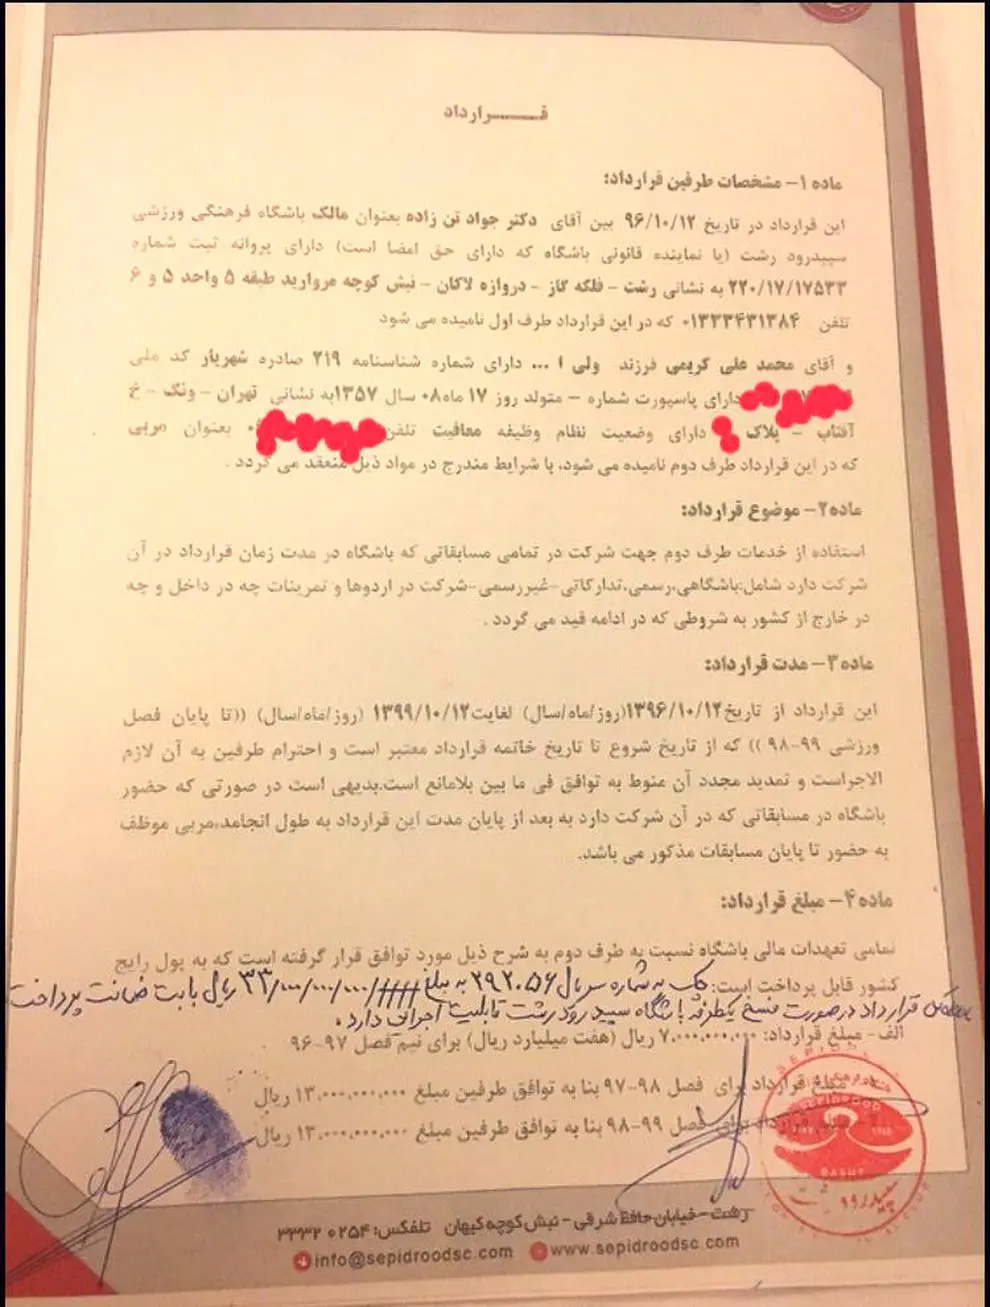 قـــــرارداد
ماده ۱- مشخصات طرفین قرارداد:
این قرارداد در تاریخ ۹۶/۱۰/۱۲ بین آقای دکتر جواد تن زاده بعنوان مالک باشگاه فرهنگی ورزشی
سپیدرود رشت (یا نماینده قانونی باشگاه که دارای حق امضا است) دارای پروانه ثبت شماره
۲۲۰/۱۷/۱۷۵۳۳ به نشانی رشت - فلکه گاز - دروازه لاکان - نبش کوچه مروارید طبقه ۵ واحد ۵ و ۶
تلفن ۰۱۳۳۳۴۳۱۳۸۴ که در این قرارداد طرف اول نامیده می شود
و آقای محمد علی کریمی فرزند ولی ا ... دارای شماره شناسنامه ۲۱۹ صادره شهریار کد ملی
دارای پاسپورت شماره - متولد روز ۱۷ ماه۰۸ سال ۱۳۵۷به نشانی تهران - ونگ - خ
آفتاب - پلاک دارای وضعیت نظام وظیفه معافیت تلفن بعنوان مربی
که در این قرارداد طرف دوم نامیده می شود، با شرایط مندرج در مواد ذیل منعقد می گردد .
ماده۲- موضوع قرارداد:
استفاده از خدمات طرف دوم جهت شرکت در تمامی مسابقاتی که باشگاه در مدت زمان قرارداد در آن
شرکت دارد شامل:باشگاهی،رسمی،تدارکاتی-غیررسمی-شرکت در اردوها و تمرینات چه در داخل و چه
در خارج از کشور به شروطی که در ادامه قید می گردد .
ماده۳- مدت قرارداد:
این قرارداد از تاریخ۱۳۹۶/۱۰/۱۲(روز/ماه/سال) لغایت۱۳۹۹/۱۰/۱۲ (روز/ماه/سال) ((تا پایان فصل
ورزشی ۹۹-۹۸ )) که از تاریخ شروع تا تاریخ خاتمه قرارداد معتبر است و احترام طرفین به آن لازم
الاجراست و تمدید مجدد آن منوط به توافق فی ما بین بلامانع است.بدیهی است در صورتی که حضور
باشگاه در مسابقاتی که در آن شرکت دارد به بعد از پایان مدت این قرارداد به طول انجامد،مربی موظف
به حضور تا پایان مسابقات مذکور می باشد.
ماده۴- مبلغ قرارداد:
تمامی تعهدات مالی باشگاه نسبت به طرف دوم به شرح ذیل مورد توافق قرار گرفته است که به پول رایج
کشور قابل پرداخت است: چک به شماره سریال ۲۹۲۰۵۶ به مبلغ ۳۳/۰۰۰/۰۰۰/۰۰۰ ریال بابت ضمانت پرداخت
قرارداد در صورت فسخ یکطرفه باشگاه سپیدرود رشت قابلیت اجرایی دارد.
الف- مبلغ قرارداد: ۷،۰۰۰،۰۰۰،۰۰۰ ریال (هفت میلیارد ریال) برای نیم فصل ۹۷-۹۶
مبلغ قرارداد برای فصل ۹۸-۹۷ بنا به توافق طرفین مبلغ ۱۳،۰۰۰،۰۰۰،۰۰۰ ریال
قرارداد برای فصل ۹۹-۹۸ بنا به توافق طرفین مبلغ ۱۳،۰۰۰،۰۰۰،۰۰۰ ریال
رشت-خیابان حافظ شرقی-نبش کوچه کیهان تلفکس: ۳۳۳۲۰۲۵۴
info@sepidroodsc.com www.sepidroodsc.com